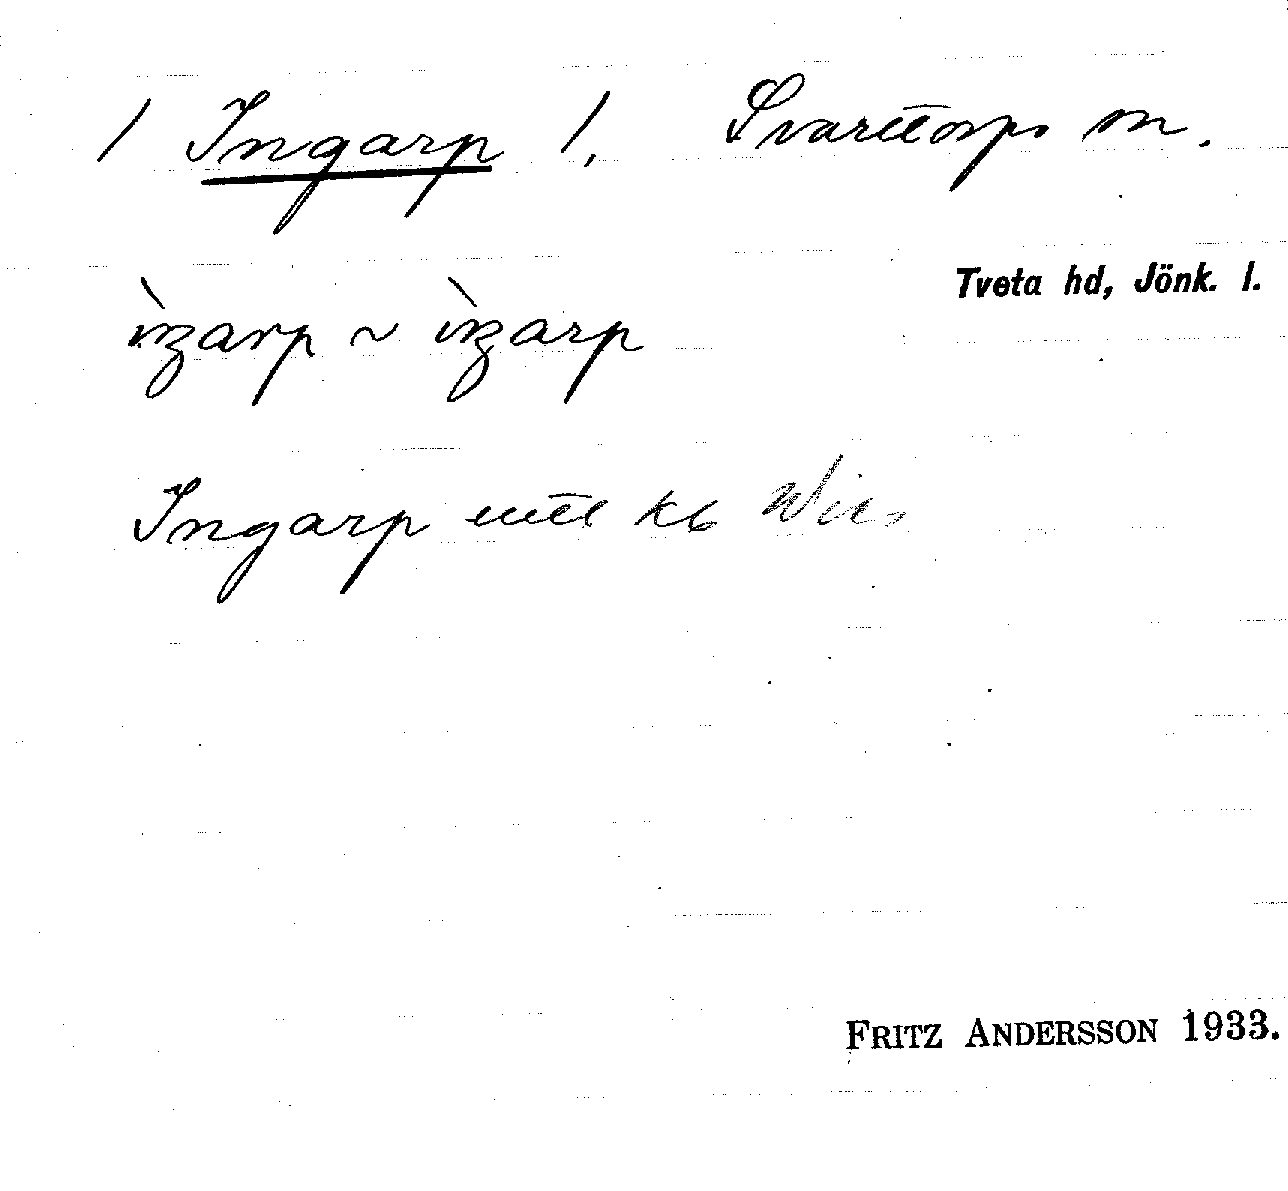 / Ingarp /. Svarttorps sn.
Tveta hd, Jönk. l.
ìŋarp ~ ìŋarp
Ingarp uttl kb
FRITZ ANDERSSON 1933.